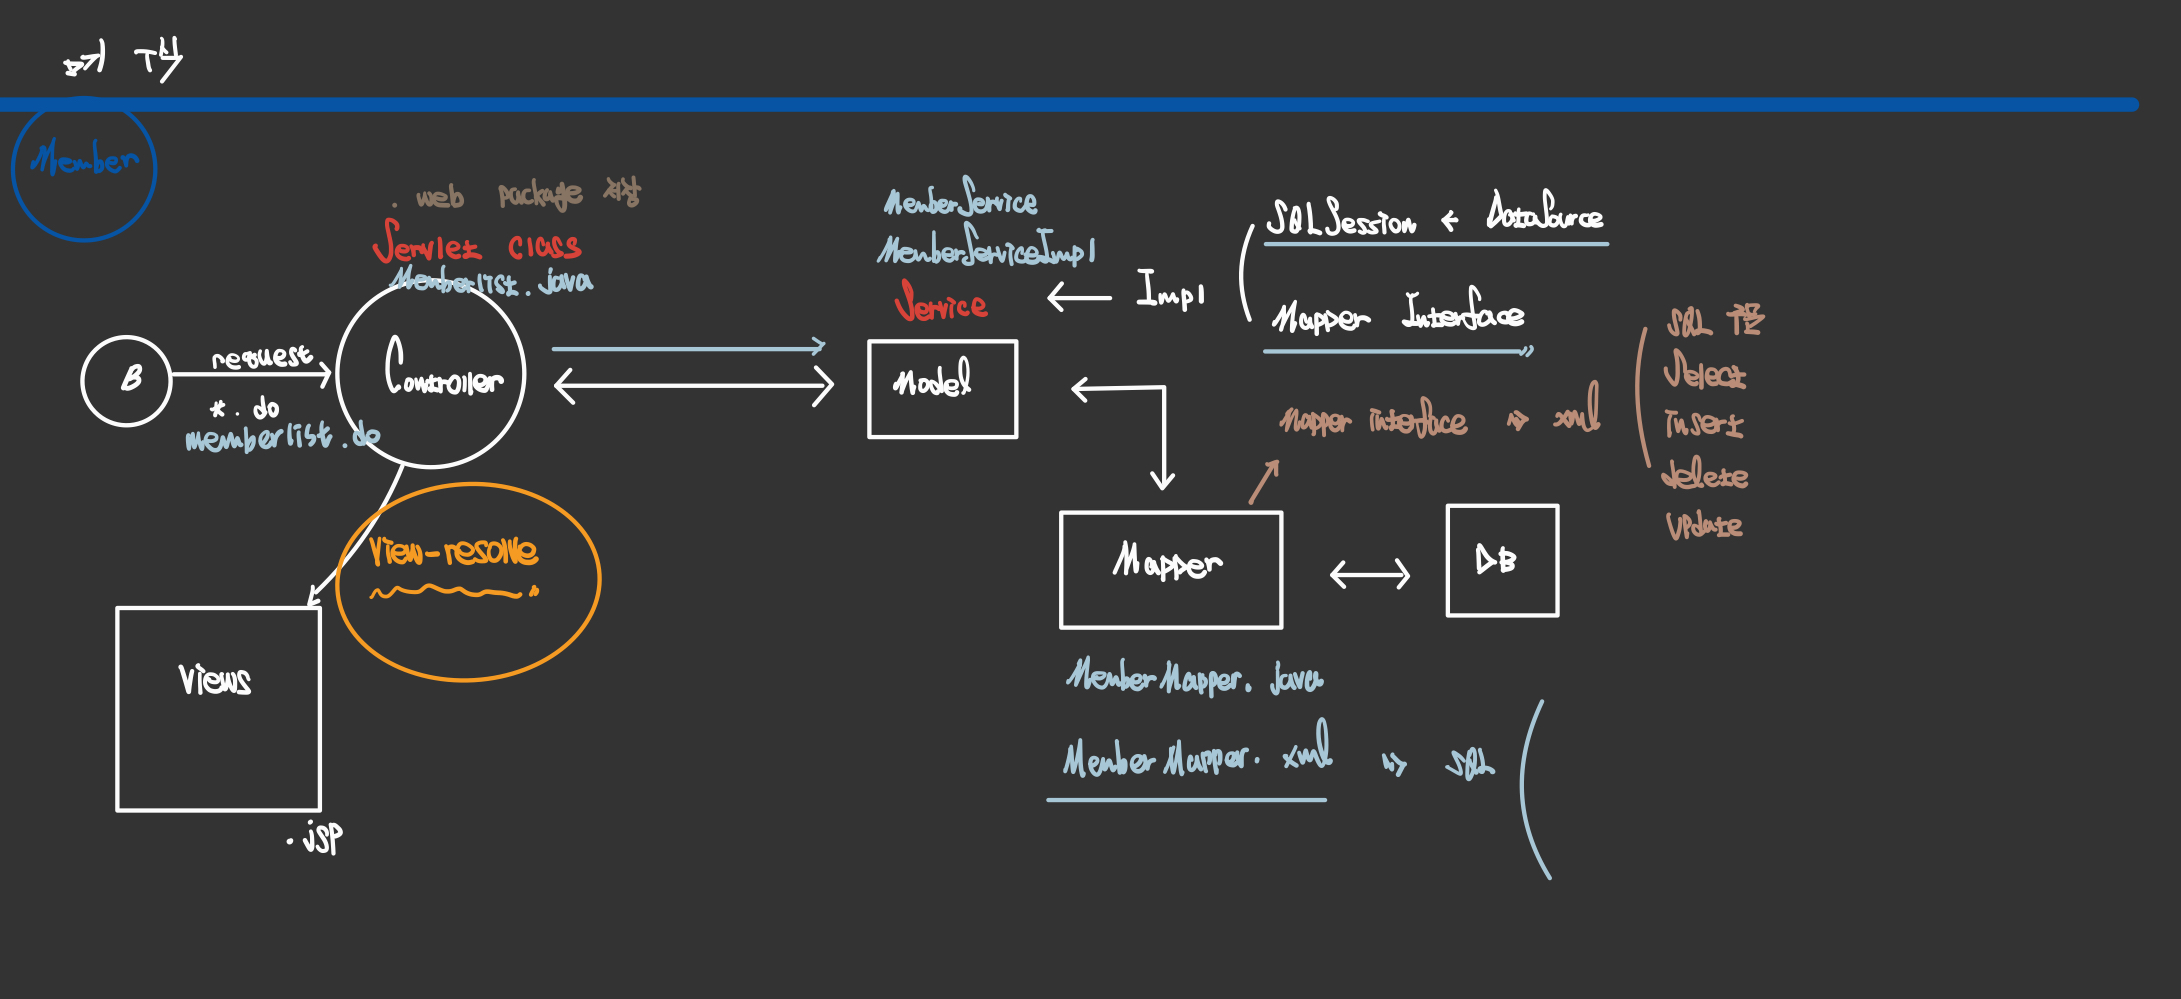 Member
. web package 저장
Servlet class
Memberlist.java
B
request
*. do
memberlist.do
Controller
View-resolve
Views
.jsp
MemberService
MemberServiceImpl
Service
Model
← Impl
SQLSession ← DataSource
Mapper Interface
Mapper interface ⇒ xml
SQL 구문
Select
insert
delete
update
Mapper
DB
MemberMapper.java
MemberMapper.xml ⇒ SQL